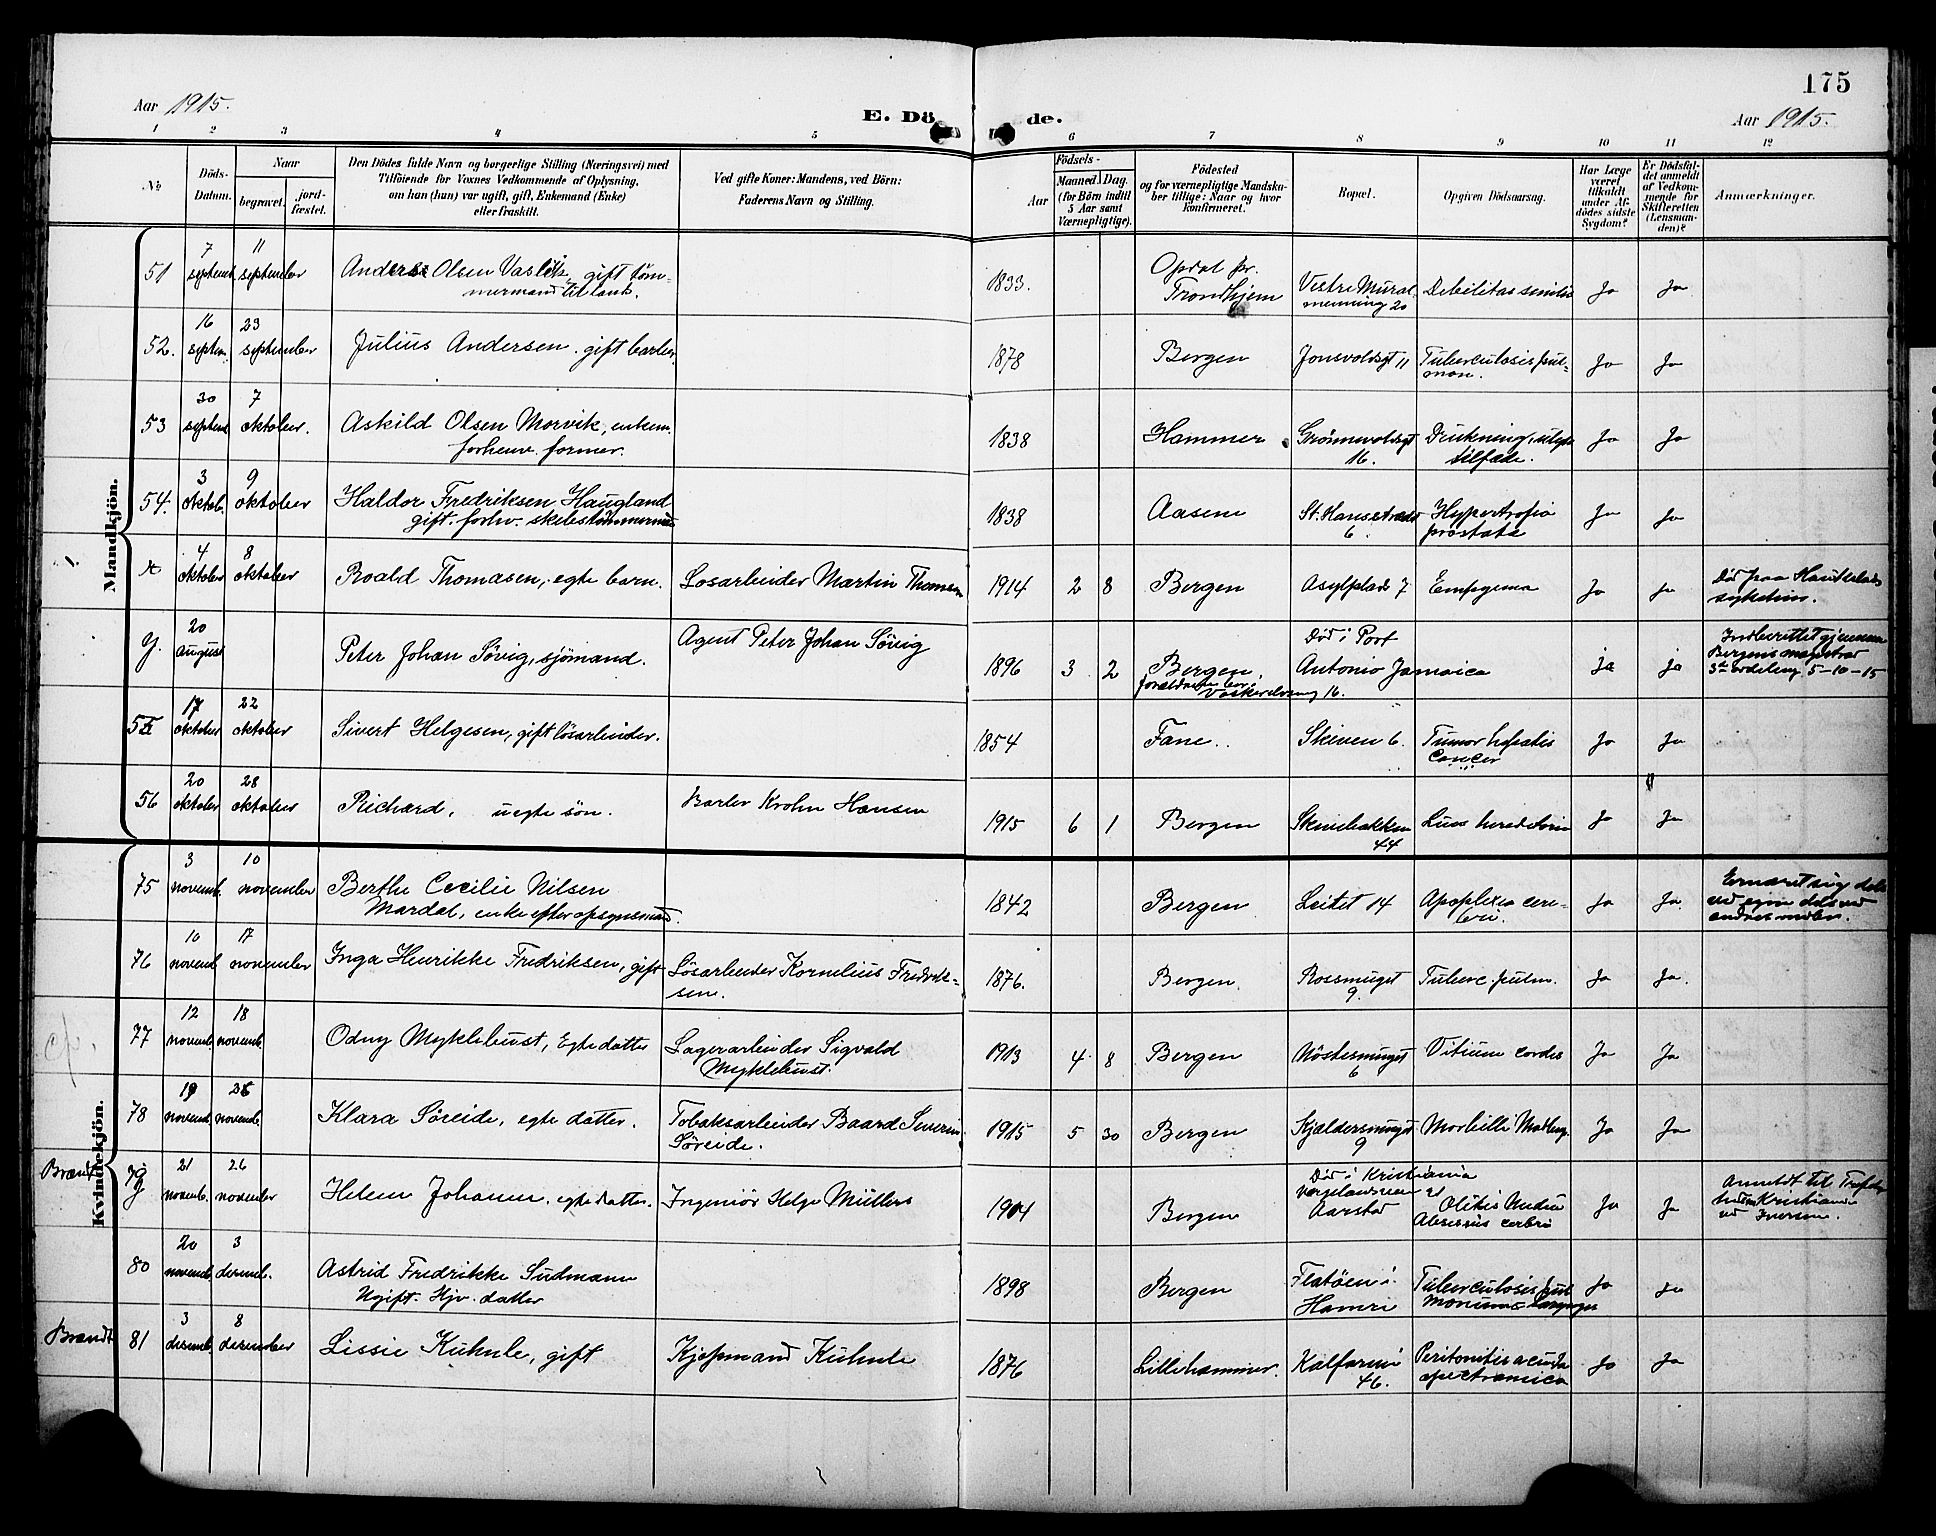 175
Aar 1915.
E. Dö de.
Aar 1915.
1 2 3 4 5 6 7 8 9 10 11 12
№
Döds-
Datum.
Naar
begravet.
jord-
fæstet.
Den Dödes fulde Navn og borgerlige Stilling (Næringsvei) med
Tilföiende for Voxnes Vedkommende af Oplysning,
om han (hun) var ugift, gift, Enkemand (Enke)
eller fraskilt.
Ved gifte Koner: Mandens, ved Börn:
Faderens Navn og Stilling.
Födsels-
Aar
Maaned. Dag.
(for Börn indtil
5 Aar samt
Værnepligtige).
Födested
og for værnepligtige Mandska-
ber tillige: Naar og hvor
konfirmeret.
Bopæl.
Opgiven Dödsaarsag.
Har Læge
været
tilkaldt
under Af-
dödes sidste
Sygdom?
Er Dödsfal-
det anmeldt
af Vedkom-
mende for
Skifteretten
(Lensman-
den)?
Anmærkninger.
Mandkjön.
51 7 septemb. 11 september Anders Olsen gift töm-
mermand 1833. Opdal pr.
Trondhjem Vestre Mural-
menning 20 Debilitas senilis Ja Ja
52. 16 septem. 23 september Julius Andersen. gift barber 1878 Bergen Jonsvoldsgt 11 Tuberculosis pul-
mon. Ja Ja
53 30 septemb. 7 oktober. Askild Olsen Morvik, enkem.
forhenv. former. 1838 Hammer Grönnevoldsgt
16. Drukning, ulykkes
tilfælde. Ja Ja
54. 3 oktob. 9 oktober Haldor Fredriksen Haugland
gift. forhv. skibstömmermand 1838 Aasene St. Hansstrædet
6 Hypertrofia
prostata Ja Ja
x 4 oktober 8 oktober Roald Thomasen, egte barn. Losarbeider Martin Thomasen 1914 2 8 Bergen Asylplads 7 Empyema Ja Ja Död paa Haukelands
sykehus.
y. 20 august Peter Johan Sövig, sjömand. Agent Peter Johan Sövig 1896 3 2 Bergen,
forældrene bor
Vaskerelvsmug 16. Död i Port
Antonio Jamaica ja ja Indberettet gjennem
Bergens magistrat
3die avdeling 5-10-15
55 17 oktober 22 oktober Sivert Helgesen, gift lösarbeider. 1854 Fane. Skiven 6. Tumor hepatis
Cancer Ja Ja
56 20 oktober 28 oktober Richard, uegte sön. Barber Krohn Hansen 1915 6 1 Bergen Skivebakken
44 Lues hereditaria Ja Ja
Kvindekjön.
75 3 novemb. 10 november Berthe Cecilie Nilsen
Mardal, enke efter opsynsmand. 1842 Bergen Leitet 14 Apoplexia cere-
bri. Ja Ja. Ernæret sig dels
ved egne dels ved
andres midler.
76 10 novemb. 17 november Inga Henrikke Fredriksen, gift Lösarbeider Kornelius Fredrik-
sen. 1876. Bergen. Rossmuget
9. Tuberc. pulm. Ja Ja.
77 12 novemb. 18 novemb. Odny Myklebust, Egte datter Lagerarbeider Sigvald
Myklebust. 1913 4 8 Bergen Nöstesmuget
6 Vitium cordis Ja Ja
78 19 novemb. 25 novemb. Klara Söreide, egte datter. Tobaksarbeider Baard Severin
Söreide. 1915 5 30 Bergen Kjældersmuget
9 Morbilli Ja Ja
Brandt 79 21 novemb. 26 november Helene Johanne. egte datter. Ingeniör Helge Müllers 1904 Bergen Död i Kristiania
Aarstad Otitis media
Abscessus cerebri Ja Ja Anmeldt til
Kristiania
ved Iversen.
80 20 novemb. 3 desemb. Astrid Fredrikke Sudmann
Ugift. Hjv. datter 1898 Bergen Flatöen i
Hamre Tuberculosis pul
monum Larynges Ja Ja
Brandt 81 3 desemb. 8 desember Lissie Kuhnle, gift Kjöpmand Kuhnle 1876 Lillehammer. Kalfarvei
46. Peritonitis acuta Ja Ja